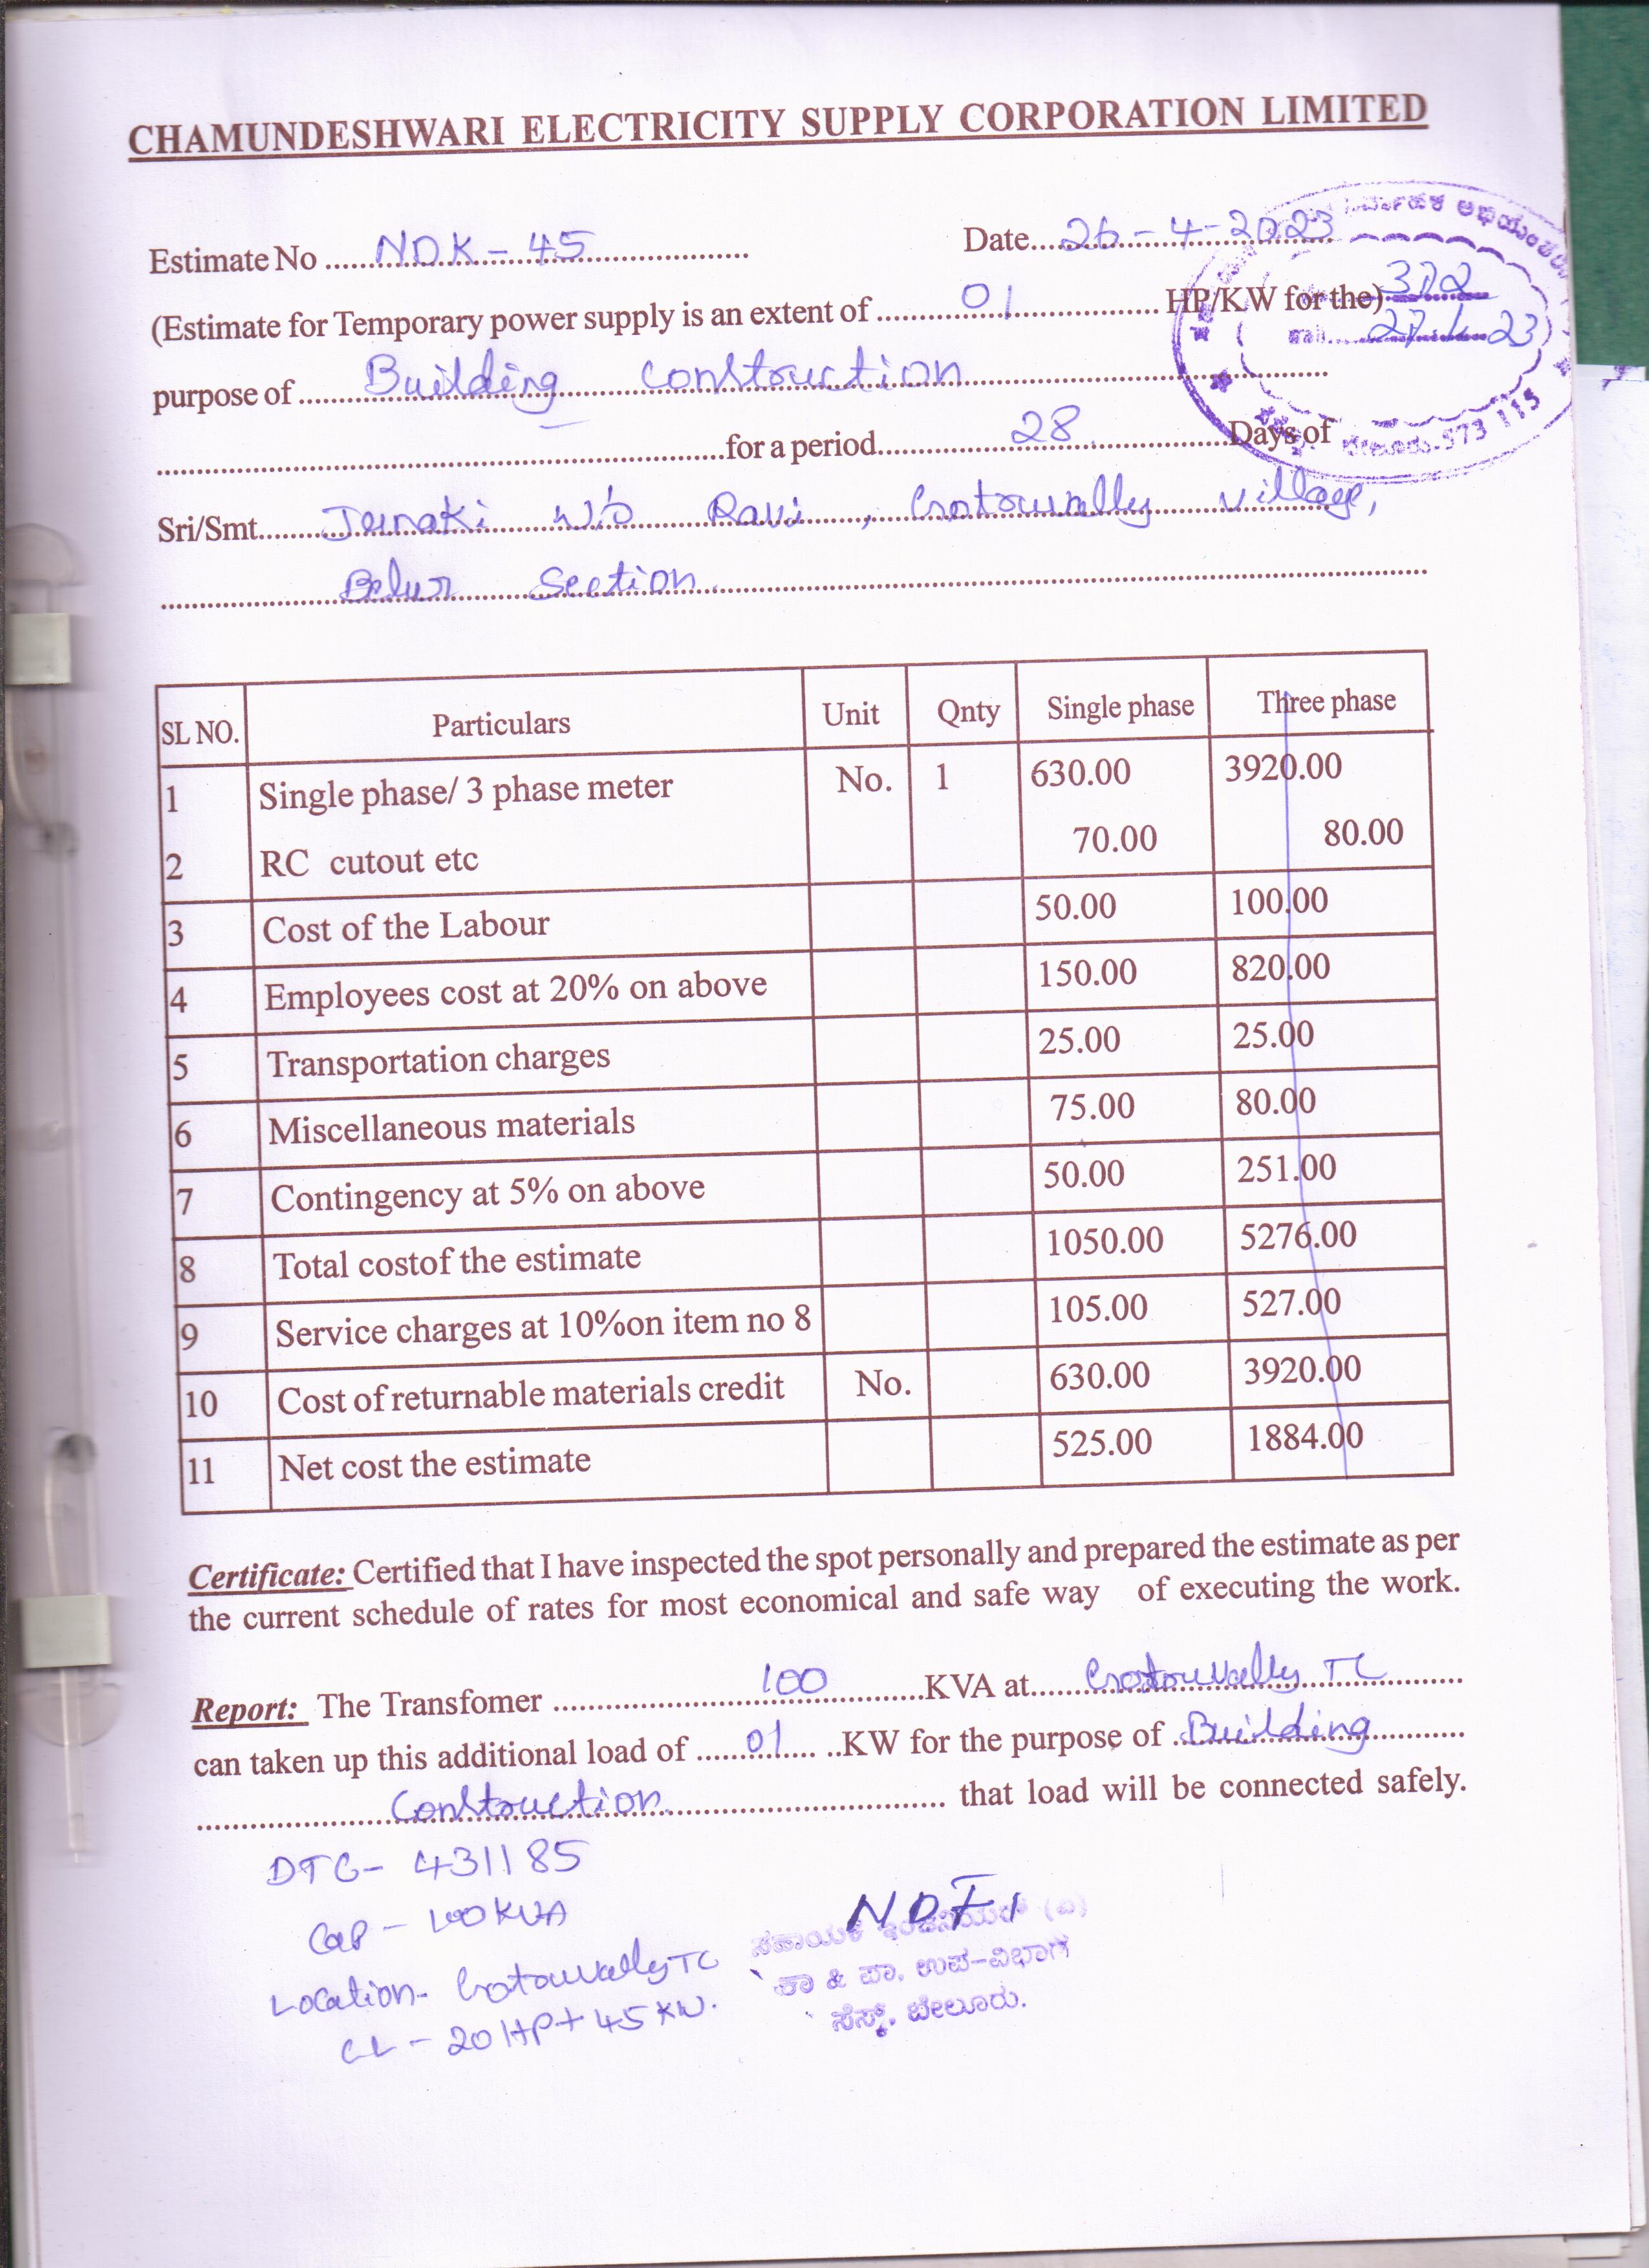 CHAMUNDESHWARI ELECTRICITY SUPPLY CORPORATION LIMITED
Estimate No ......NDK - 45...... Date...26-4-2023
(Estimate for Temporary power supply is an extent of ......01...... HP/KW for the)
372
27 4 23
purpose of ......Building Construction......
......for a period......28......Days of
ಬೇಲೂರು.573 115
Sri/Smt......Janaki W/o Ravi, village,
Belur Section
SL NO. Particulars Unit Qnty Single phase Three phase
1 Single phase/ 3 phase meter No. 1 630.00 3920.00
2 RC cutout etc 70.00 80.00
3 Cost of the Labour 50.00 100.00
4 Employees cost at 20% on above 150.00 820.00
5 Transportation charges 25.00 25.00
6 Miscellaneous materials 75.00 80.00
7 Contingency at 5% on above 50.00 251.00
8 Total costof the estimate 1050.00 5276.00
9 Service charges at 10%on item no 8 105.00 527.00
10 Cost of returnable materials credit No. 630.00 3920.00
11 Net cost the estimate 525.00 1884.00
Certificate: Certified that I have inspected the spot personally and prepared the estimate as per
the current schedule of rates for most economical and safe way of executing the work.
Report: The Transfomer ......100......KVA at...... TC......
can taken up this additional load of ......01...... ..KW for the purpose of ..Building......
......Construction...... that load will be connected safely.
DTC- 431185
Cap - 100 KVA
Location- TC
CL - 20 HP + 45 KW.
ಸಹಾಯಕ ಇಂಜಿನಿಯರ್ (ವಿ)
ಕಾ & ಪಾ. ಉಪ-ವಿಭಾಗ
ಸೆಸ್ಕ್, ಬೇಲೂರು.